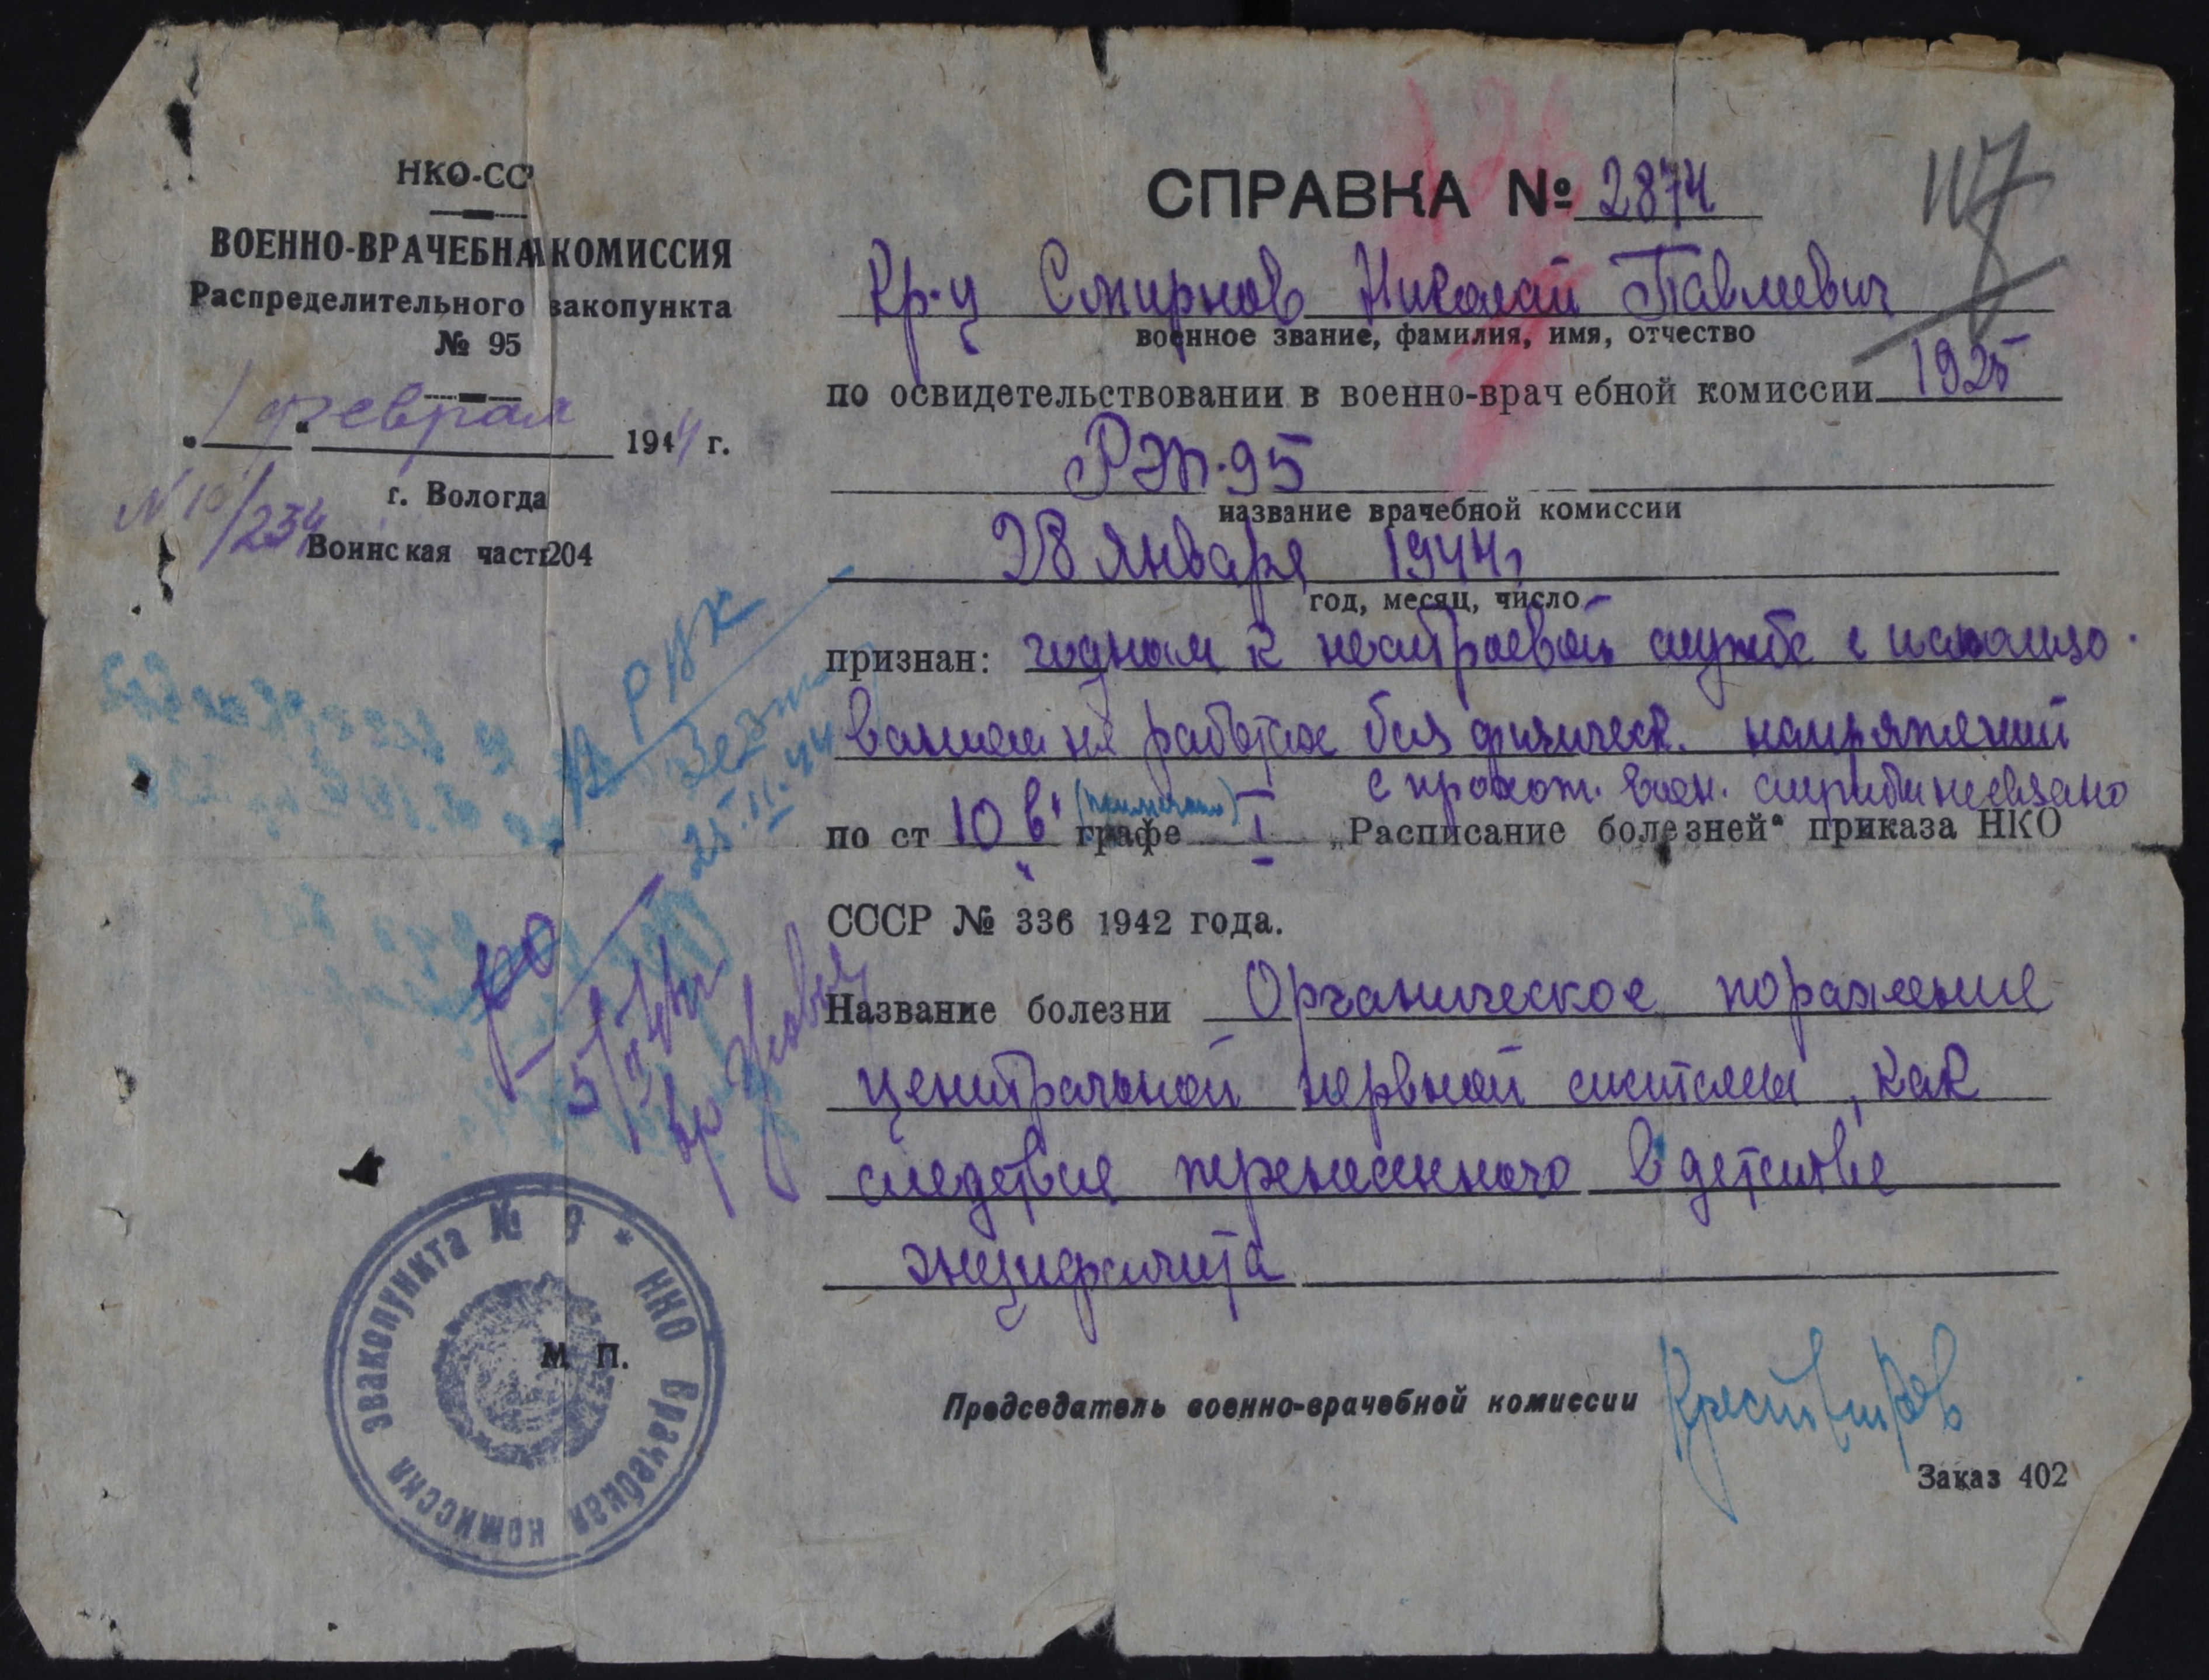 НКО-СС
ВОЕННО-ВРАЧЕБНАЯ КОМИССИЯ
Распределительного эвакопункта
№ 95
1 февраля 1944 г.
г. Вологда
N 10/234
Воинская часть 204
СПРАВКА № 2874
117
Кр-ц Смирнов Николай Павлович
военное звание, фамилия, имя, отчество
по освидетельствовании в военно-врачебной комиссии 1925
РЭП-95
название врачебной комиссии
28 января 1944 г
год, месяц, число
признан: годным к нестроевой службе с использо-
ванием на работах без физическ. напряжений
с прохож. воен. службы не связано
по ст 10 в' графе I „Расписание болезней" приказа НКО
СССР № 336 1942 года.
Название болезни Органическое поражение
центральной нервной системы, как
следствие перенесенного в детстве
энцефалита
РВК
25.II.44
М. П.
НКО Врачебная комиссия эвакопункта № 9
Председатель военно-врачебной комиссии
Заказ 402